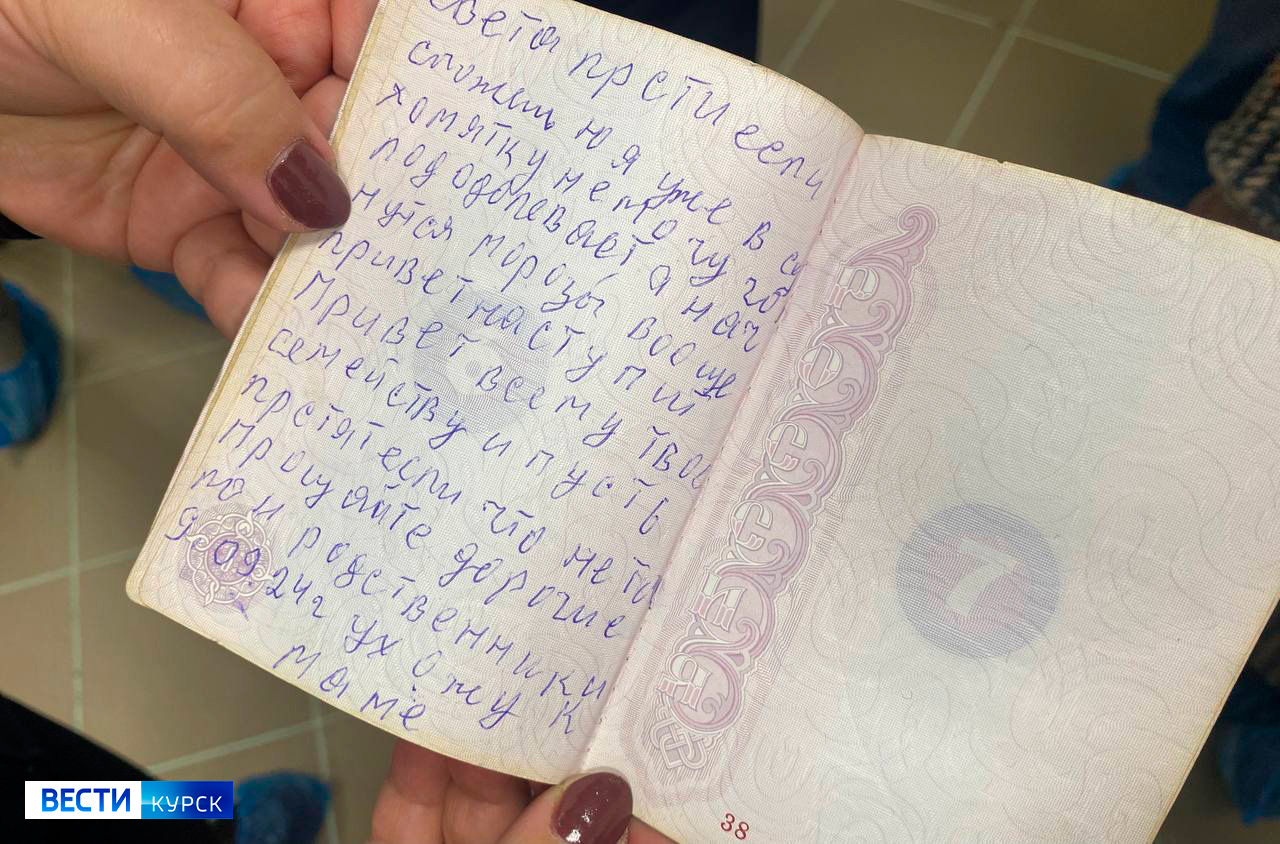 Света прсти если
сможеш ю я уже в са
хомятку не прочу го
под одолевает а нач
нутся морозы вооще
привет наступит
Привет всему твое
семейству и пусть
прстят если что не та
Прощяйте дорогие
по и родственники
9.09.24г ухожу к
маме
7
38
ВЕСТИ КУРСК